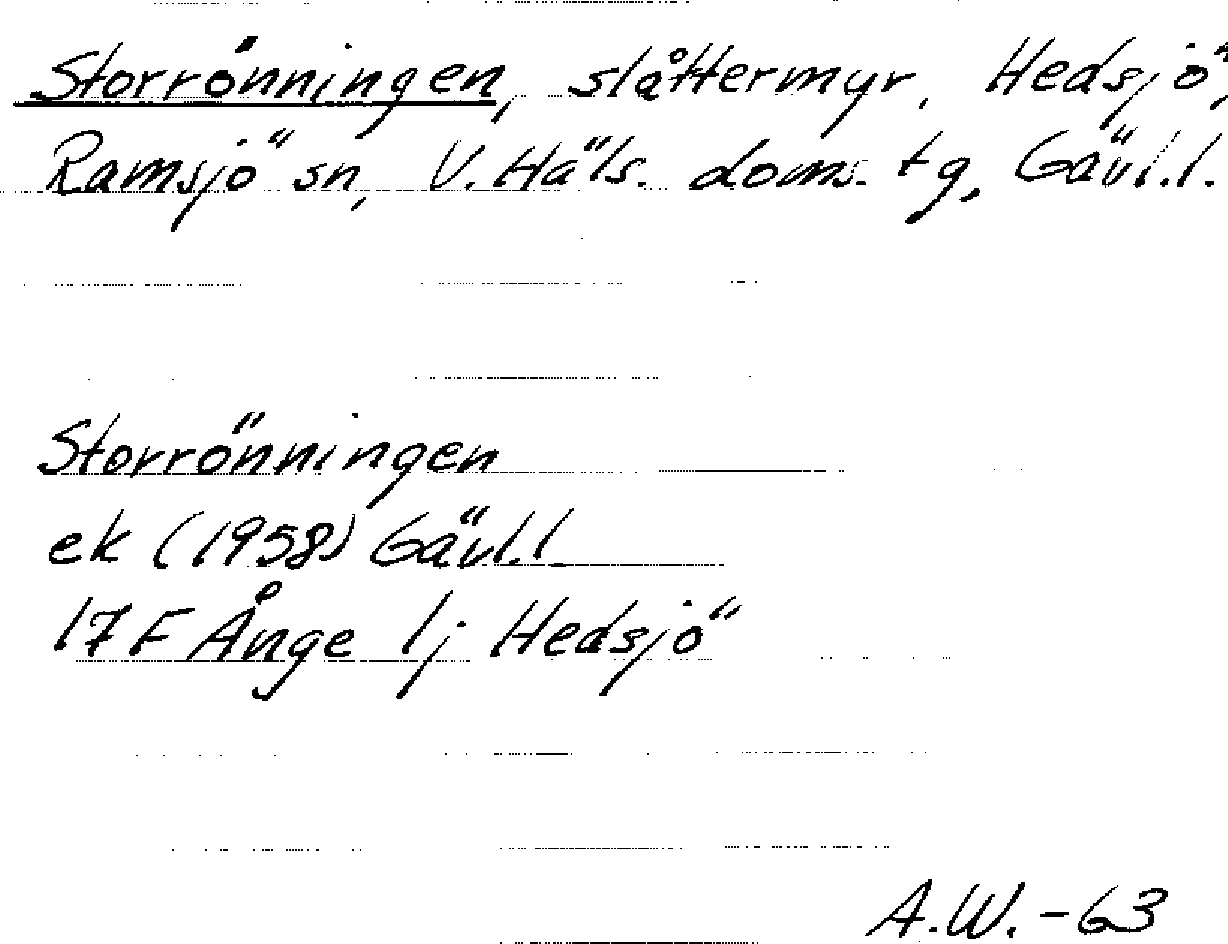 Storrönningen, slåttermyr, Hedsjö,
Ramsjö sn, V. Häls. doms. tg, Gävl.l.
Storrönningen
ek (1958) Gävl.l
17 F Ånge 1j Hedsjö
A.W. -63